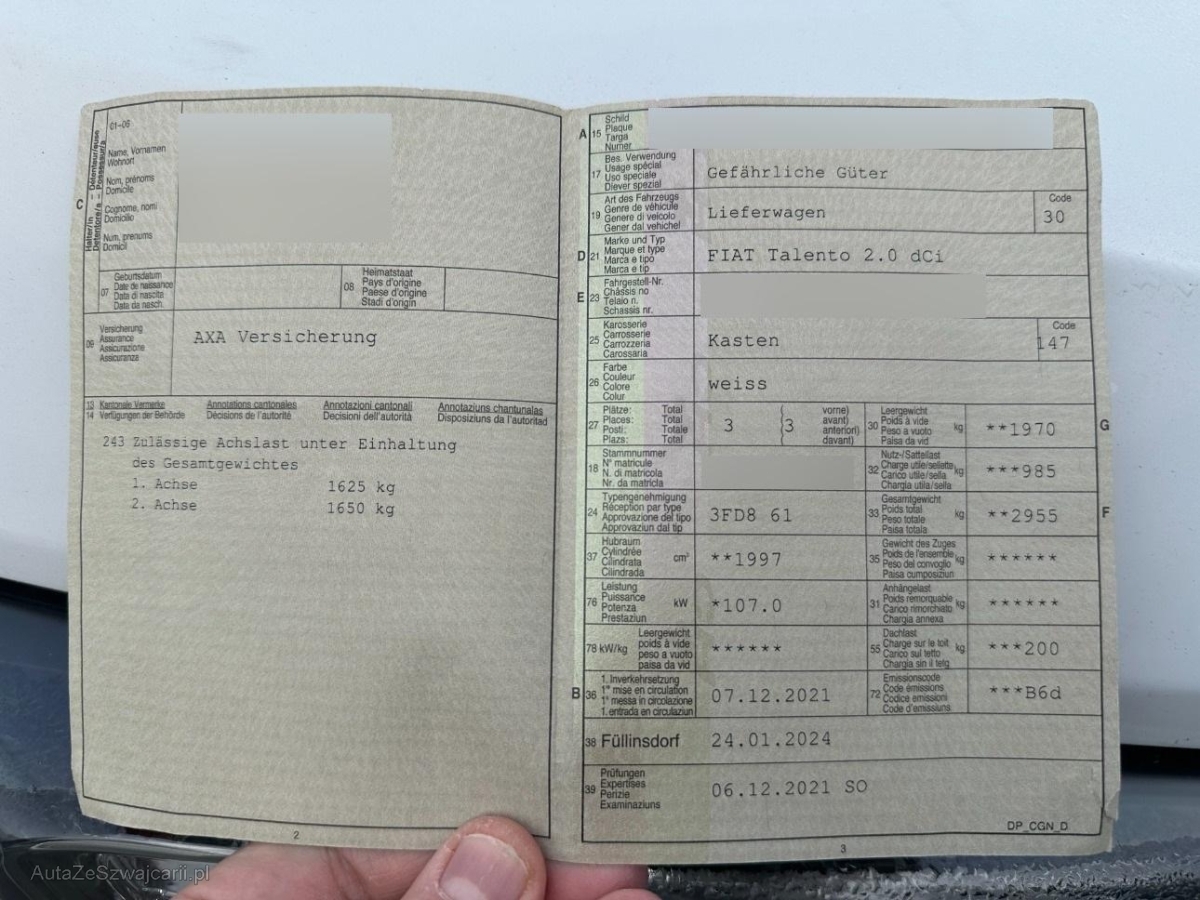 01–06
C
Halter/in – Détenteur/euse
Detentore/a – Possessur/a
Name, Vornamen
Wohnort
Nom, prénoms
Domicile
Cognome, nomi
Domicilio
Num, prenums
Domicil
07
Geburtsdatum
Date de naissance
Data di nascita
Data da nasch.
08
Heimatstaat
Pays d'origine
Paese d'origine
Stadi d'origin
09
Versicherung
Assurance
Assicurazione
Assicuranza
AXA Versicherung
13 Kantonale Vermerke Annotations cantonales Annotazioni cantonali Annotaziuns chantunalas
14 Verfügungen der Behörde Décisions de l'autorité Decisioni dell'autorità Disposiziuns da l'autoritad
243 Zulässige Achslast unter Einhaltung
des Gesamtgewichtes
1. Achse 1625 kg
2. Achse 1650 kg
2
A 15
Schild
Plaque
Targa
Numer
17
Bes. Verwendung
Usage spécial
Uso speciale
Diever spezial
Gefährliche Güter
19
Art des Fahrzeugs
Genre de véhicule
Genere di veicolo
Gener dal vehichel
Lieferwagen
Code
30
D 21
Marke und Typ
Marque et type
Marca e tipo
Marca e tip
FIAT Talento 2.0 dCi
E 23
Fahrgestell-Nr.
Châssis no
Telaio n.
Schassis nr.
25
Karosserie
Carrosserie
Carrozzeria
Carossaria
Kasten
Code
147
26
Farbe
Couleur
Colore
Colur
weiss
27
Plätze: Total
Places: Total
Posti: Totale
Plazs: Total
3 (3
vorne)
avant)
anteriori)
davant)
30
Leergewicht
Poids à vide
Peso a vuoto
Paisa da vid
kg
**1970
G
18
Stammnummer
N° matricule
N. di matricola
Nr. da matricla
32
Nutz-/Sattellast
Charge utile/sellette
Carico utile/sella
Chargia utila/sella
kg
***985
24
Typengenehmigung
Réception par type
Approvazione del tipo
Approvaziun dal tip
3FD8 61
33
Gesamtgewicht
Poids total
Peso totale
Paisa totala
kg
**2955
F
37
Hubraum
Cylindrée
Cilindrata
Cilindrada
cm³
**1997
35
Gewicht des Zuges
Poids de l'ensemble
Peso del convoglio
Paisa cumposiziun
kg
******
76
Leistung
Puissance
Potenza
Prestaziun
kW
*107.0
31
Anhängelast
Poids remorquable
Carico rimorchiato
Chargia annexa
kg
******
78 kW/kg
Leergewicht
poids à vide
peso a vuoto
paisa da vid
******
55
Dachlast
Charge sur le toit
Carico sul tetto
Chargia sin il tetg
kg
***200
B 36
1. Inverkehrsetzung
1re mise en circulation
1a messa in circolazione
1. entrada en circulaziun
07.12.2021
72
Emissionscode
Code émissions
Codice emissioni
Code d'emissiuns
***B6d
38 Füllinsdorf 24.01.2024
39
Prüfungen
Expertises
Perizie
Examinaziuns
06.12.2021 SO
DP_CGN_D
3
AutaZeSzwajcarii.pl